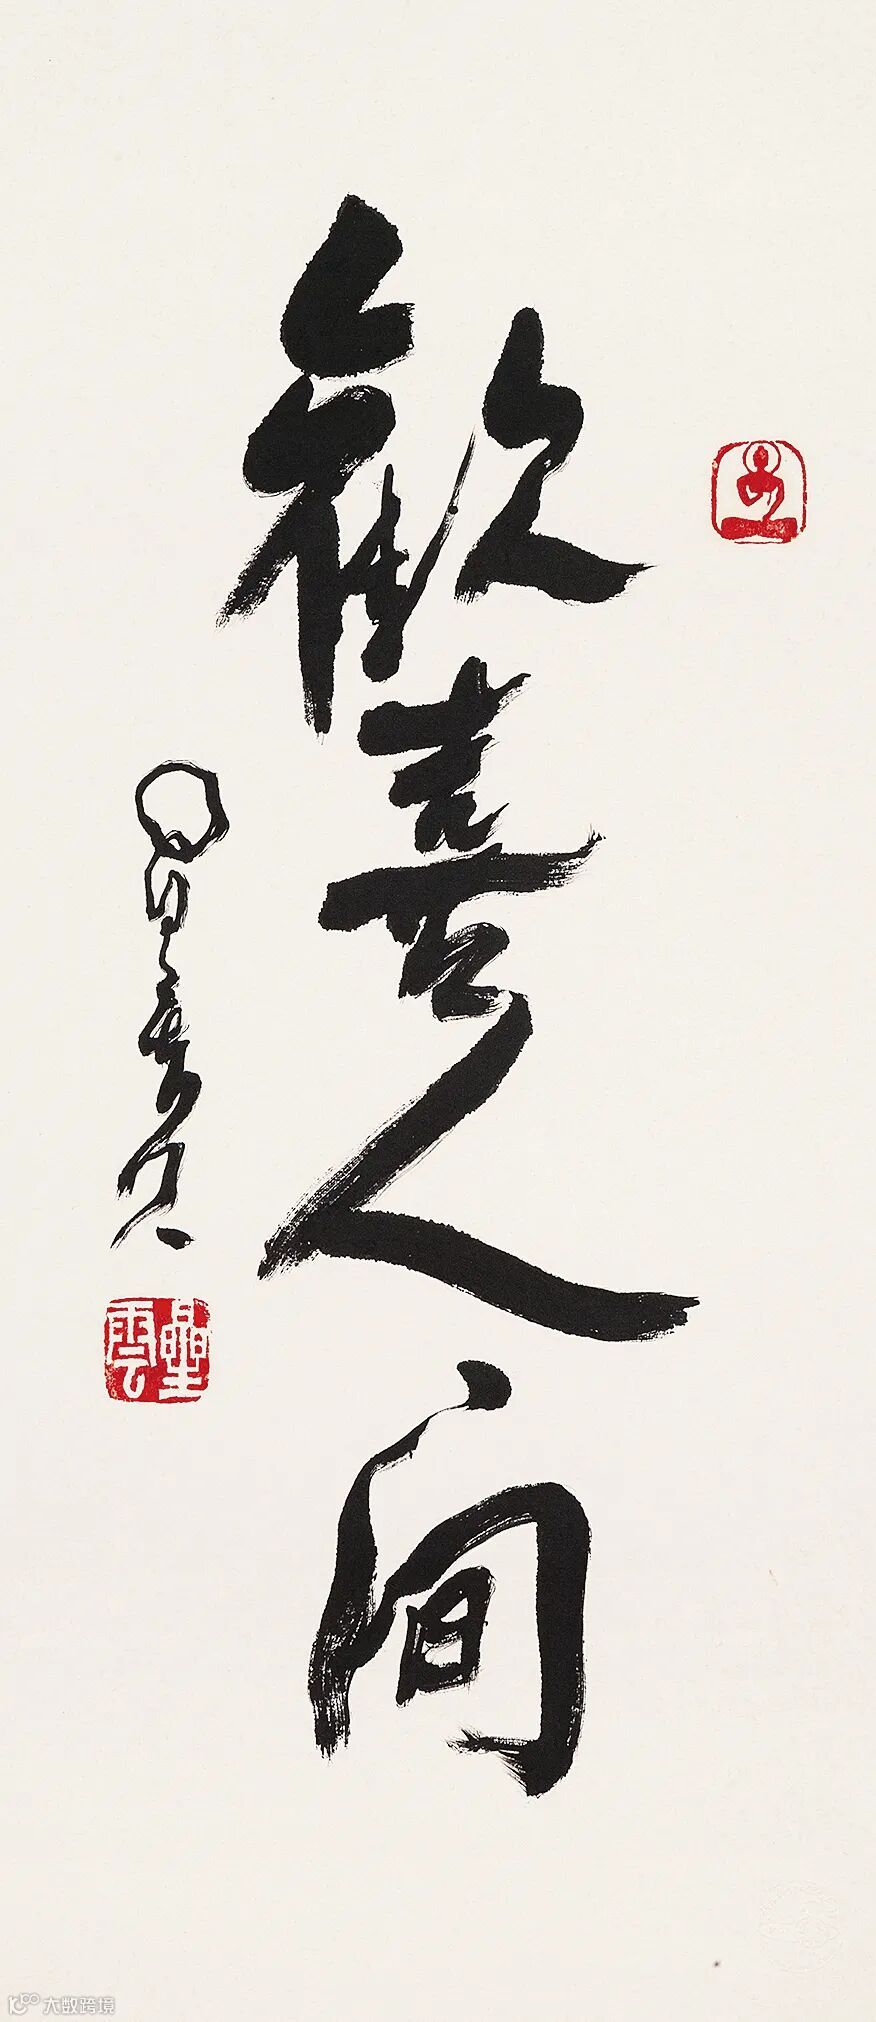 歡喜人間
星雲
星雲
大数跨境